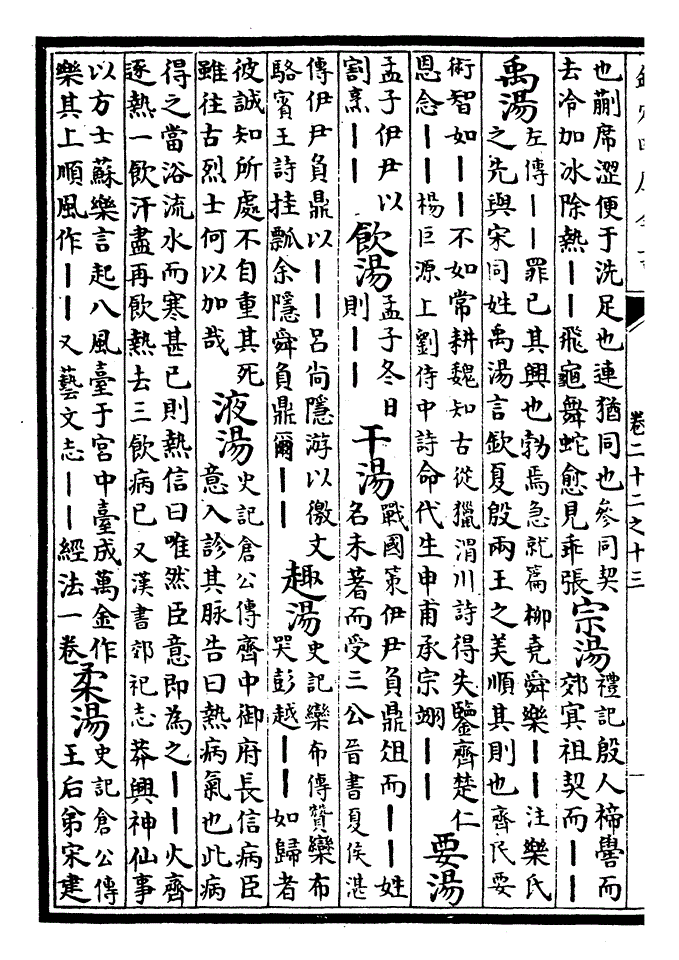 卷二十二之十三
也蒯席澀便于洗足也連猶同也參同契
去冷加冰除熱丨丨飛龜舞蛇愈見乖張
宗湯
禮記殷人禘嚳而
郊㝠祖契而丨丨
禹湯
左傳丨丨罪已其興也勃焉急就篇柳堯舜樂丨丨注樂氏
之先與宋同姓禹湯言欽夏殷兩王之美順其則也齊民要
術智如丨丨不如常耕魏知古從獵渭川詩得失鑒齊楚仁
恩念丨丨楊巨源上劉侍中詩命代生申甫承宗翊丨丨
要湯
孟子伊尹以
割烹丨丨
飲湯
孟子冬日
則丨丨
干湯
戰國策伊尹負鼎俎而丨丨姓
名未著而受三公晉書夏侯湛
傳伊尹負鼎以丨丨呂尚隱游以徼文
駱賓王詩挂瓢余隱舜負鼎爾丨丨
趣湯
史記欒布傳贊欒布
哭彭越丨丨如歸者
彼誠知所處不自重其死
雖往古烈士何以加哉
液湯
史記倉公傳齊中御府長信病臣
意入診其脉告曰熱病氣也此病
得之當浴流水而寒甚已則熱信曰唯然臣意即為之丨丨火齊
逐熱一飲汗盡再飲熱去三飲病已又漢書郊祀志莽興神仙事
以方士蘇樂言起八風臺于宮中臺成萬金作
樂其上順風作丨丨又藝文志丨丨經法一卷
柔湯
史記倉公傳
王后弟宋建